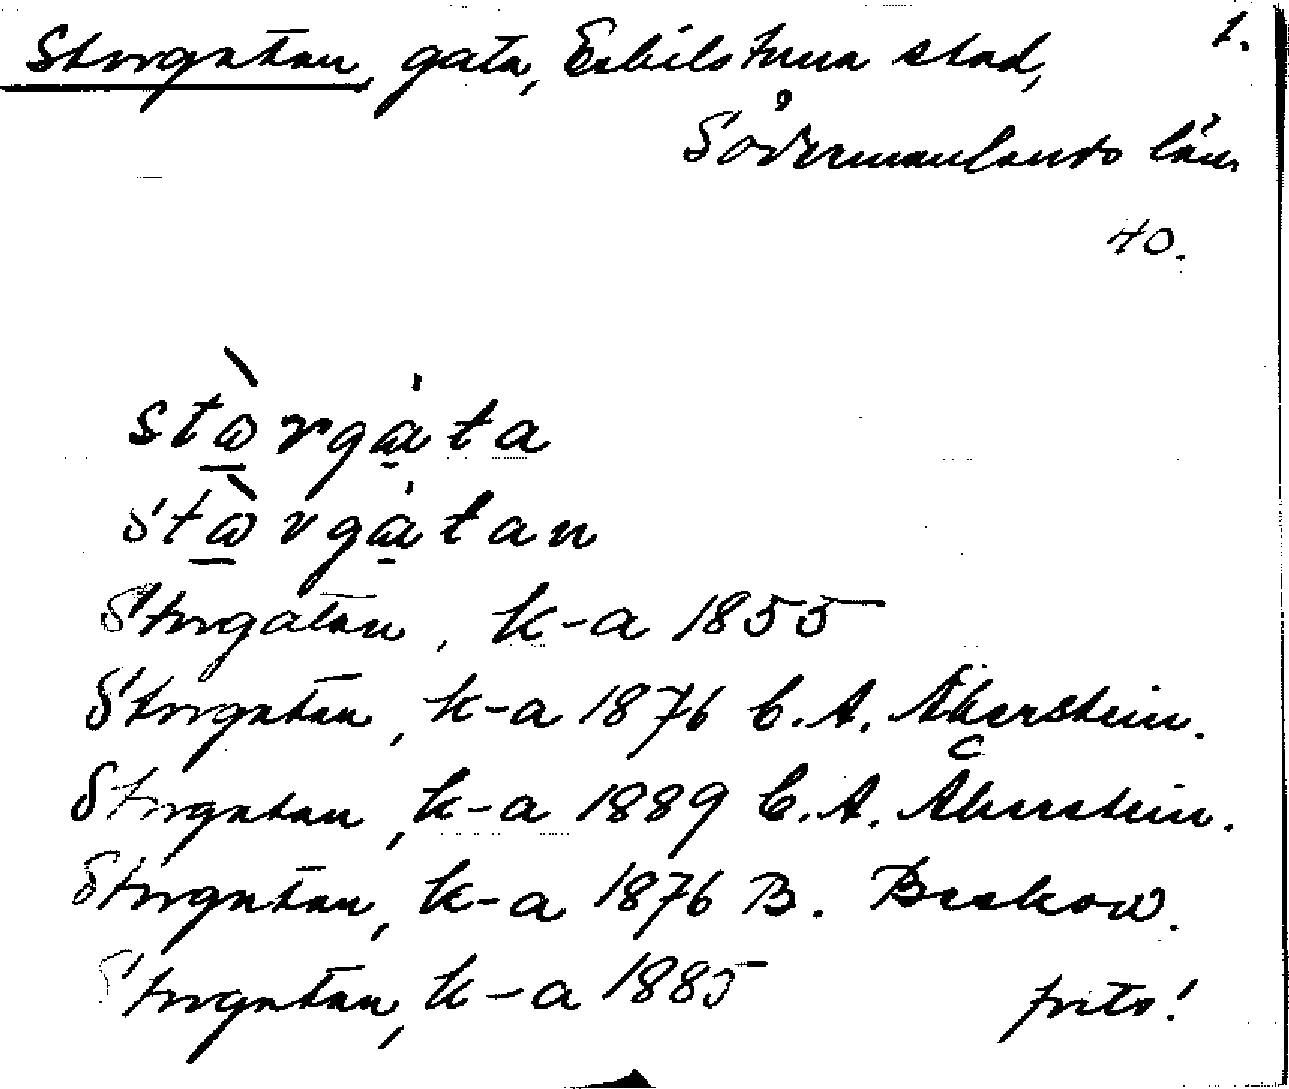 Storgatan, gata, Eskilstuna stad, 1.
Södermanlands län
40.
stò̱rgȧ̱ta
stò̱rgȧ̱tan
Storgatan, k-a 1855
Storgatan, k-a 1876 C. A. Åkerstein.
Storgatan, k-a 1889 C. A. Åkerstein.
Storgatan, k-a 1876 B. Beskow.
Storgatan, k-a 1885 forts!